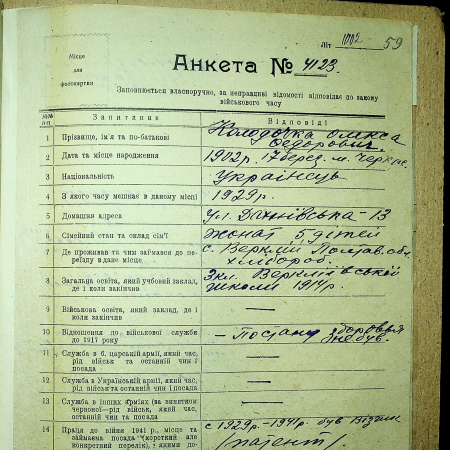 Літ 1002 59
Місце
для
фотокартки
Анкета № 4123.
Заповнюється власноручно, за неправдиві відомості відповідає по закону
військового часу
№№
п-п
Запитання
Відповіді
1 Прізвище, ім'я та по-батькові
Колодочка Олекса
Федорович.
2 Дата та місце народження
1902 р. 17 берез. м. Черкас
3 Національність
Українець
4 З якого часу мешкає в даному місці
1929 р.
5 Домашня адреса
Ул. Дахнівська - 13
6 Сімейний стан та склад сім'ї
жонат 5 дітей
7 Де проживав та чим займався до пе-
реїзду в дане місце
с. Веркіїй Полтав. обл.
хлібороб.
8 Загальна освіта, який учбовий заклад,
де і коли закінчив
3 кл. Веркіївської
школи 1914 р.
9 Військова освіта, який заклад, де і
коли закінчив
—
10 Відношення до військової служби
до 1917 року
— По стану здоровья
не був.
11 Служба в б. царській армії, який час,
рід військ та останній чин і
посада
—
12 Служба в Українській армії, який час,
рід військ та останній чин і посада
—
13 Служба в інших арміях (за винятком
червоної—рід військ, який час,
останній чин та посада
—
14 Праця до війни 1941 р., місце та
займаєма посада (короткий але
конкретний перелік), якими до-
с 1929 р. - 1941 р. був Візник
/патент/.